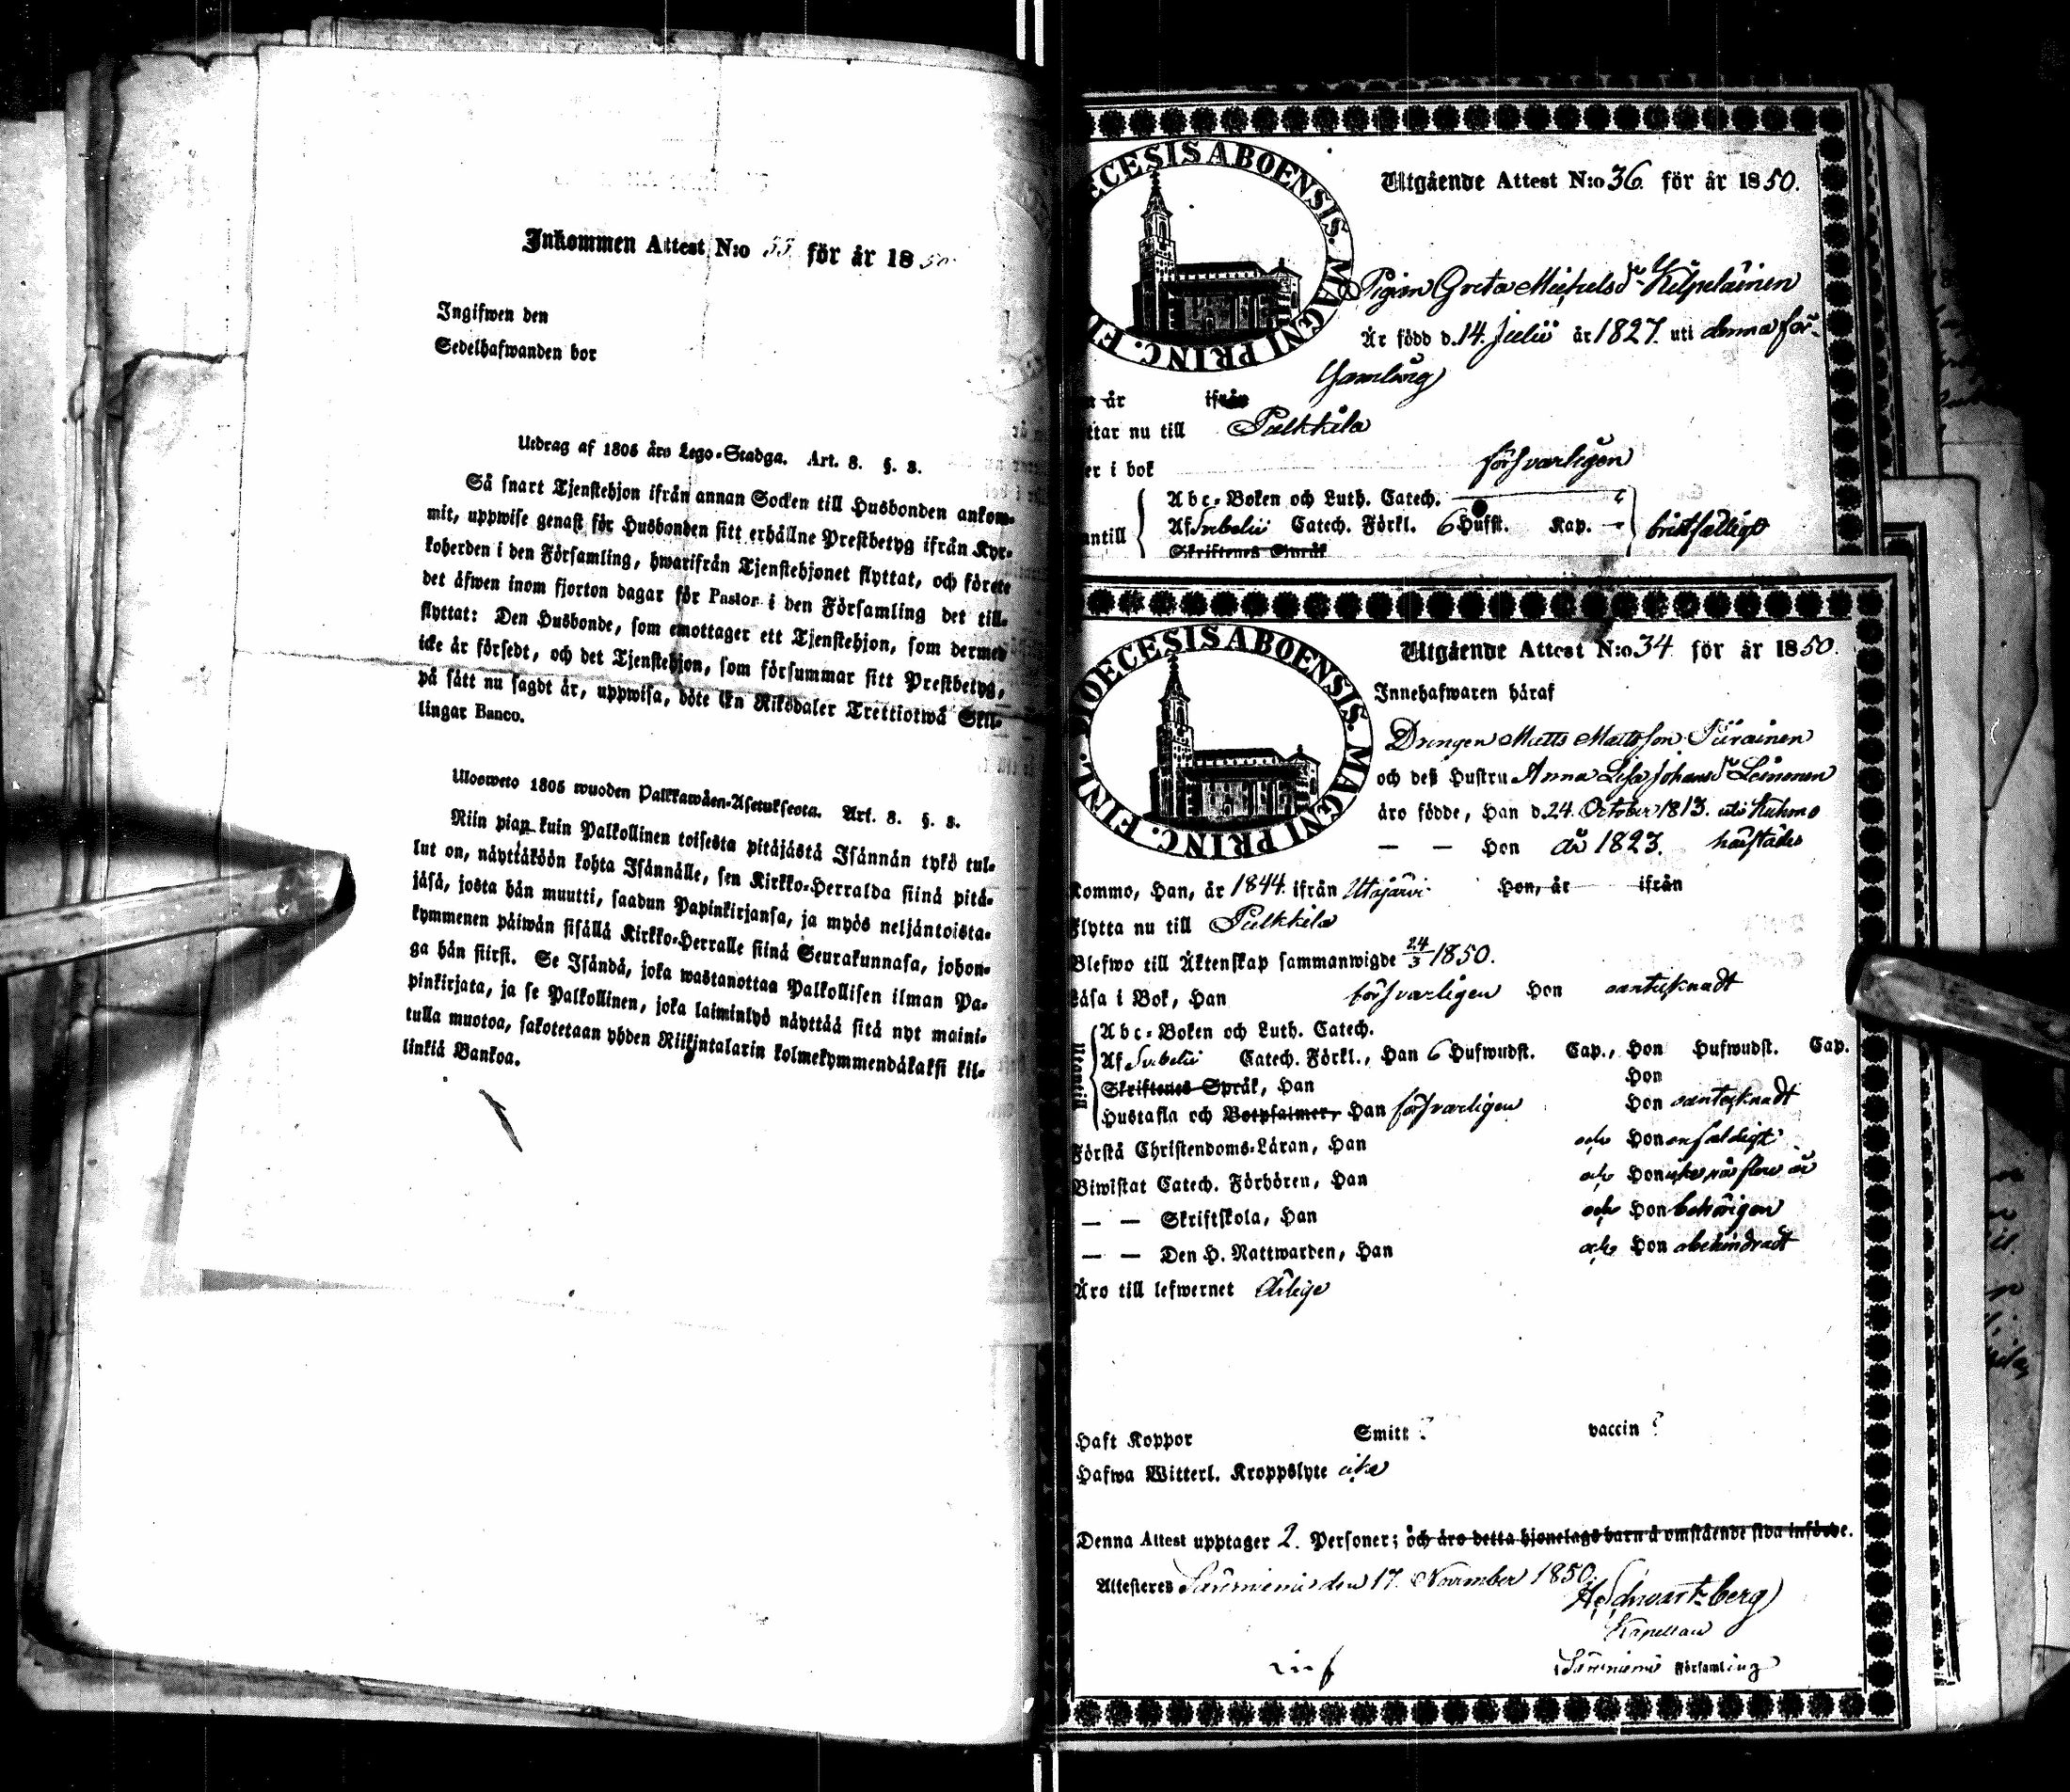 Inkommen Attest N:o 55 för år 1850.
Ingifwen den
Sedelhafwanden bor
Utdrag af 1805 års Lego-Stadga. Art. 8. §. 3.
Så snart Tjenstehjon ifrån annan Socken till Husbonden ankom-
mit, uppwise genast för Husbonden sitt erhållne Prestbetyg ifrån Kyr-
koherden i den Församling, hwarifrån Tjenstehjonet flyttat, och förete
det äfwen inom fjorton dagar för Pastor i den Församling det till-
flyttat: Den Husbonde, som emottager ett Tjenstehjon, som dermed
icke är försedt, och det Tjenstehjon, som försummar sitt Prestbetyg,
på sätt nu sagdt är, uppwisa, böte En Riksdaler Trettiotwå Skil-
lingar Banco.
Ulosweto 1805 wuoden Palkkawäen-Asetuksesta. Art. 8. §. 3.
Niin pian kuin Palkollinen toisesta pitäjästä Isännän tykö tul-
lut on, näyttäköön kohta Isännälle, sen Kirkko-Herralda siinä pitä-
jäsä, josta hän muutti, saadun Papinkirjansa, ja myös neljäntoista-
kymmenen päiwän sisällä Kirkko-Herralle siinä Seurakunnasa, johon-
ga hän siirsi. Se Isändä, joka wastanottaa Palkollisen ilman Pa-
pinkirjata, ja se Palkollinen, joka laiminlyö näyttää sitä nyt maini-
tulla muotoa, sakotetaan yhden Riikintalarin kolmekymmendäkaksi kil-
linkiä Bankoa.
ECESIS ABOENSIS. MAGNI PRINC. FI
Utgående Attest N:o 36. för år 1850.
Pigan Greta Michelsdr Kilpeläinen
Är född d. 14. Julii år 1827. uti denna för-
samling
år ifrån
ttar nu till Pulkkila
er i bok försvarligen
Abc-Boken och Luth. Catech.
Af Svebelii Catech. Förkl. 6 Hufst. Kap.
antill bristfälligt
Skriftenes Språk
DIOECESIS ABOENSIS. MAGNI PRINC. FINL.
Utgående Attest N:o 34 för år 1850.
Innehafwaren häraf
Drengen Matts Mattsson Piirainen
och deß Hustru Anna Lisa Johansdr Leinonen
äro födde, Han d. 24. October 1813. uti Kuhmo
— — Hon år 1823. härstädes
Kommo, Han, år 1844. ifrån Utajärvi Hon, år ifrån
Flytta nu till Pulkkila
Blefwo till Äktenskap sammanwigde 24/3 1850.
Läsa i Bok, Han försvarligen Hon
Abc-Boken och Luth. Catech.
Utantill
Af Svebelii Catech. Förkl., Han 6 Hufwudst. Cap., Hon Hufwudst. Cap.
Skriftenes Språk, Han Hon
Hustafla och Botpsalmer, Han försvarligen Hon
Förstå Christendoms-Läran, Han och Hon enfaldigt
Biwistat Catech. Förhören, Han och Hon icke på flere år
— — Skriftskola, Han och Hon behörigen
— — Den H. Nattwarden, Han och Hon obehindradt
Äro till lefwernet ärlige
Haft Koppor Smitt ? vaccin ?
Hafwa Witterl. Kroppslyte icke
Denna Attest upptager 2. Personer; och äro detta hjonelags barn å omstående sida införde.
Attesteres Säräisniemi den 17. November 1850.
H. Schwartzberg
Kapellan
Säräisniemi Församling